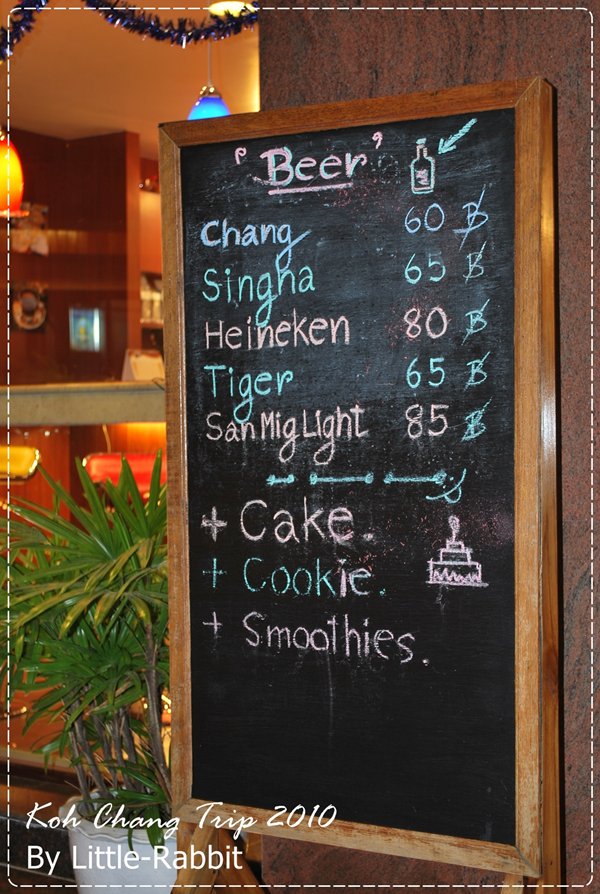 "Beer"
Chang 60 ฿
Singha 65 ฿
Heineken 80 ฿
Tiger 65 ฿
San Mig Light 85 ฿
+ Cake.
+ Cookie.
+ Smoothies.
Koh Chang Trip 2010
By Little-Rabbit